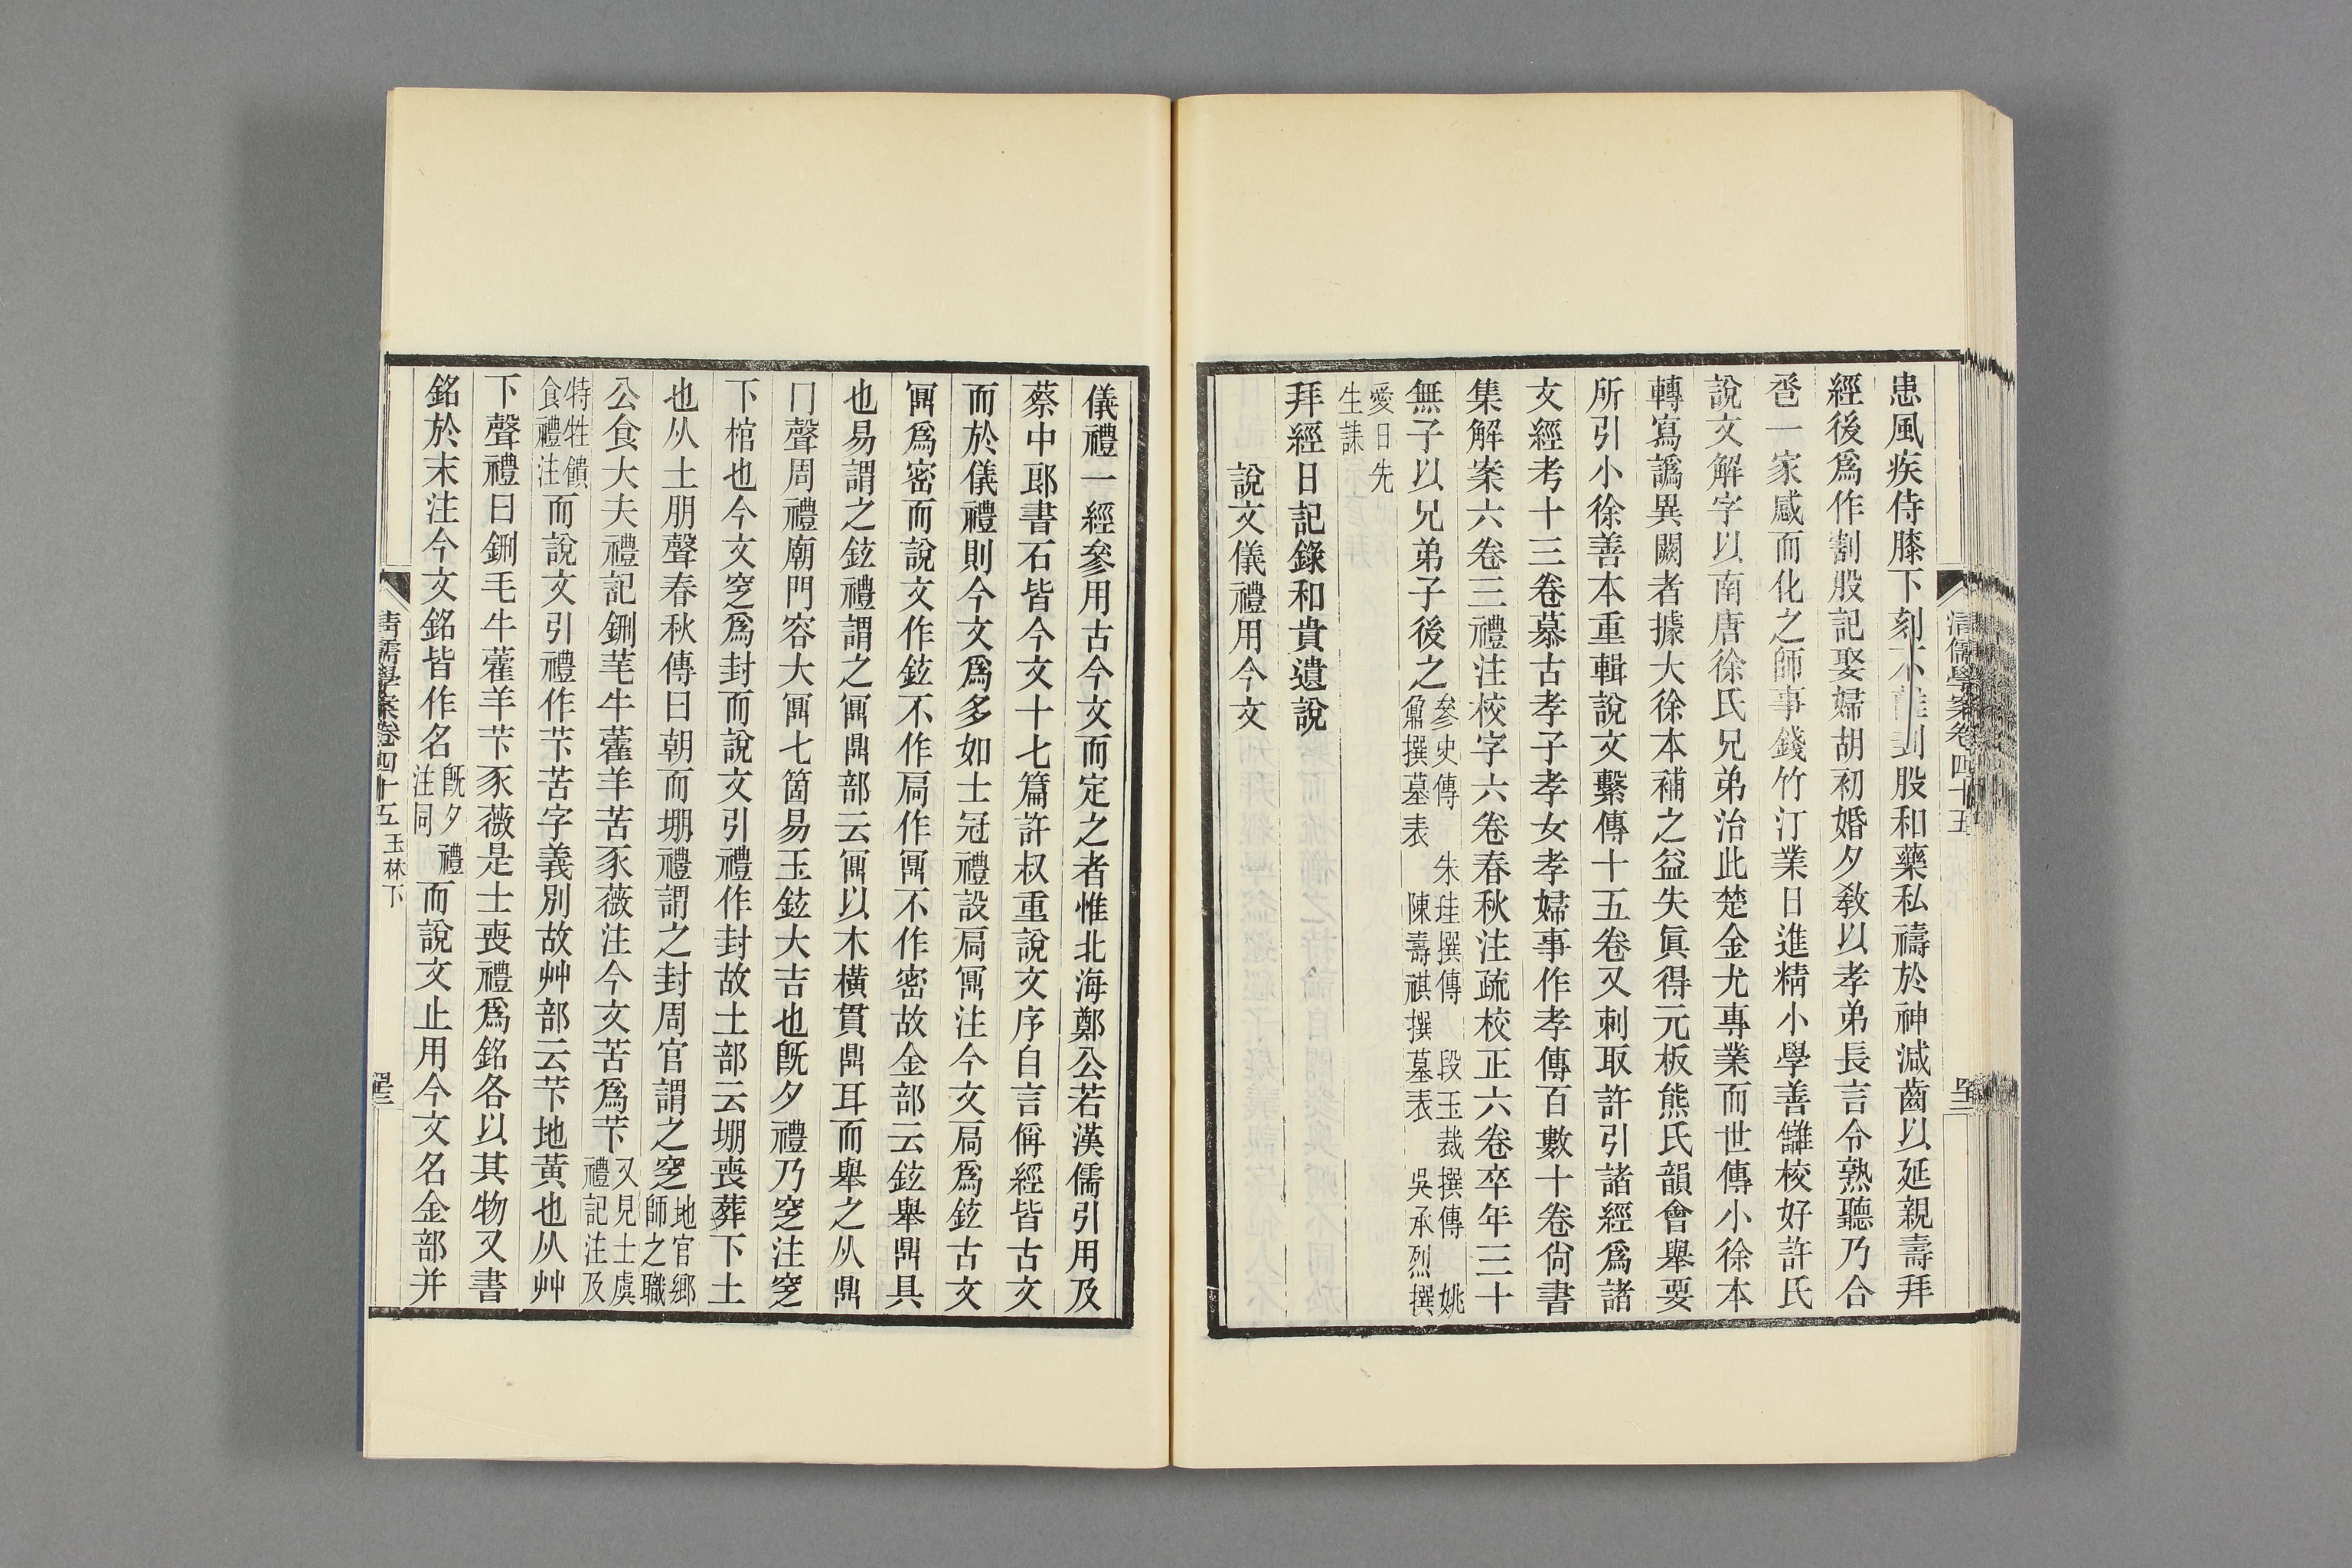 患風疾侍膝下刻不離刲股和藥私禱於神減齒以延親壽拜
經後爲作割股記娶婦胡初婚夕敎以孝弟長言令熟聽乃合
卺一家感而化之師事錢竹汀業日進精小學善讎校好許氏
說文解字以南唐徐氏兄弟治此楚金尤專業而世傳小徐本
轉寫譌異闕者據大徐本補之益失眞得元板熊氏韻會舉要
所引小徐善本重輯說文繫傳十五卷又刺取許引諸經爲諸
文經考十三卷慕古孝子孝女孝婦事作孝傳百數十卷尙書
集解案六卷三禮注校字六卷春秋注疏校正六卷卒年三十
無子以兄弟子後之參史傳 朱珪撰傳 段玉裁撰傳 姚
鼐撰墓表 陳壽祺撰墓表 吳承烈撰
愛日先
生誄
拜經日記錄和貴遺說
說文儀禮用今文
清儒學案卷四十五
儀禮一經參用古今文而定之者惟北海鄭公若漢儒引用及
蔡中郎書石皆今文十七篇許叔重說文序自言偁經皆古文
而於儀禮則今文爲多如士冠禮設扃鼏注今文扃爲鉉古文
鼏爲密而說文作鉉不作扃作鼏不作密故金部云鉉舉鼎具
也易謂之鉉禮謂之鼏鼎部云鼏以木橫貫鼎耳而舉之从鼎
冂聲周禮廟門容大鼏七箇易玉鉉大吉也旣夕禮乃窆注窆
下棺也今文窆爲封而說文引禮作封故土部云堋喪葬下土
也从土朋聲春秋傳曰朝而堋禮謂之封周官謂之窆地官鄉
師之職
公食大夫禮記鉶芼牛藿羊苦豕薇注今文苦爲芐又見士虞
禮記注及
特牲饋
食禮注而說文引禮作芐苦字義別故艸部云芐地黃也从艸
下聲禮曰鉶毛牛藿羊芐豕薇是士喪禮爲銘各以其物又書
銘於末注今文銘皆作名旣夕禮
注同而說文止用今文名金部并
清儒學案卷四十五 玉林下